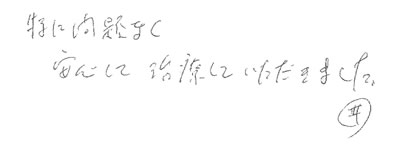 特に問題なく
安心して治療していただきました。
井